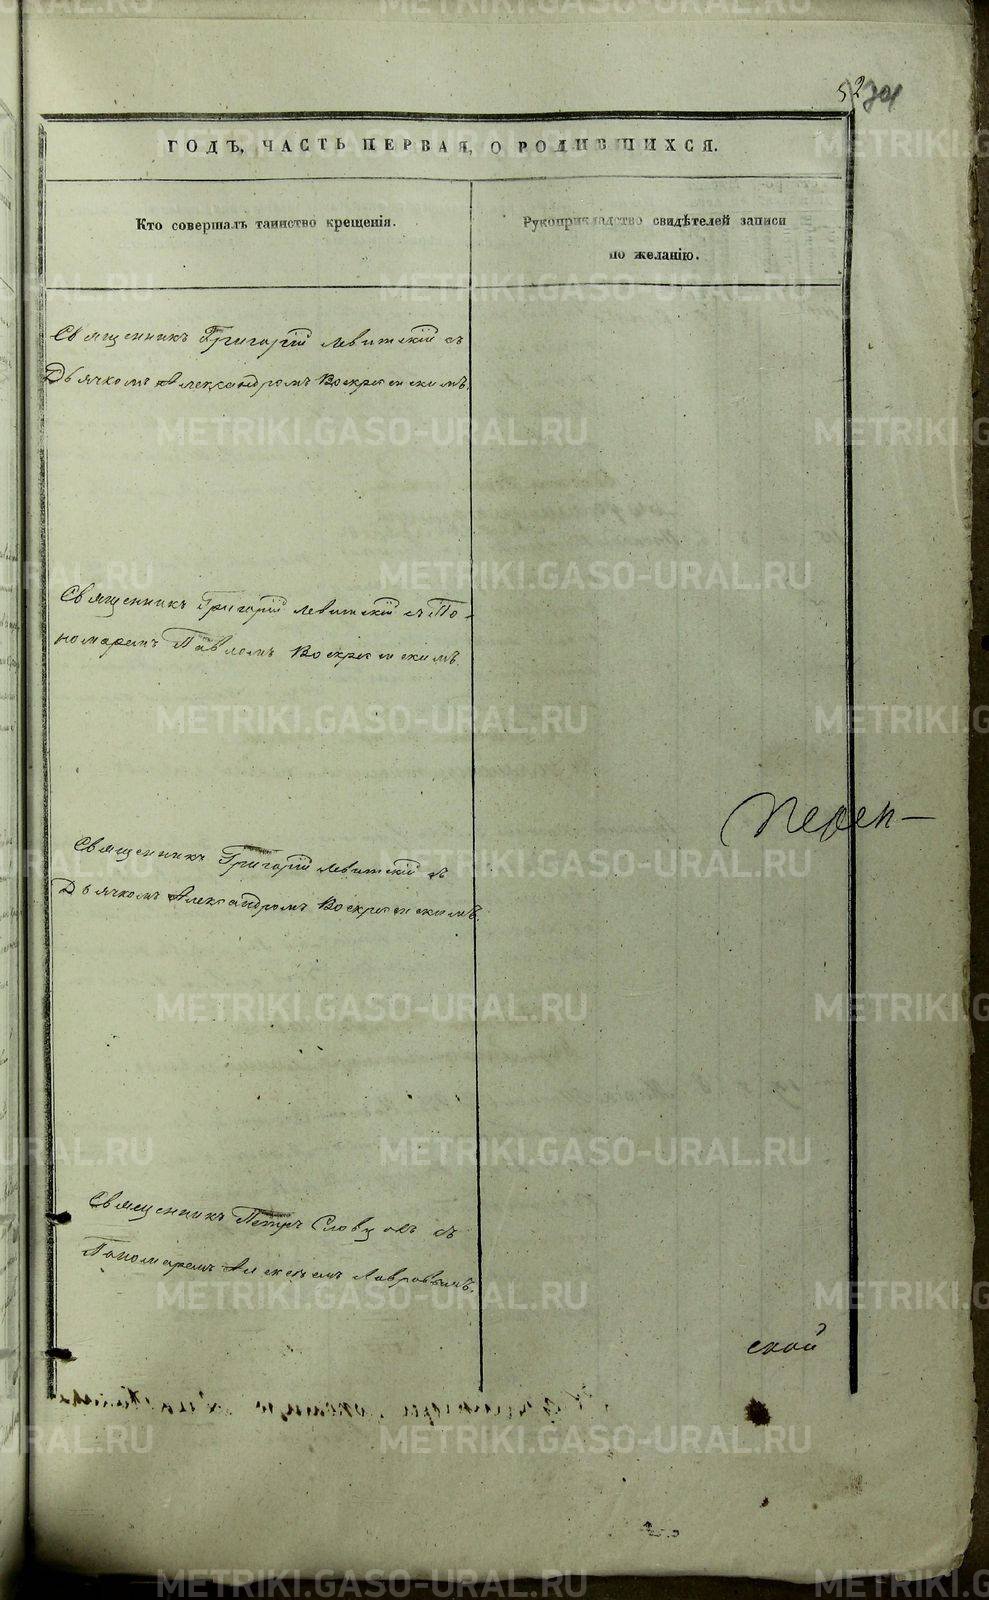 52
ГОДЪ, ЧАСТЬ ПЕРВАЯ, О РОДИВШИХСЯ.
Кто совершалъ таинство крещенія.
Рукоприкладство свидѣтелей записи
по желанію.
Священникъ Григорій Левитскій съ
Дьячкомъ Александромъ Воскресенскимъ.
Священникъ Григорій Левитскій съ По-
номаремъ Павломъ Воскресенскимъ.
Священникъ Григорій Левитскій съ
Дьячкомъ Александромъ Воскресенскимъ.
Священникъ Петръ Словцовъ съ
Пономаремъ Алексѣемъ Лавровымъ.
ской
METRIKI.GASO-URAL.RU